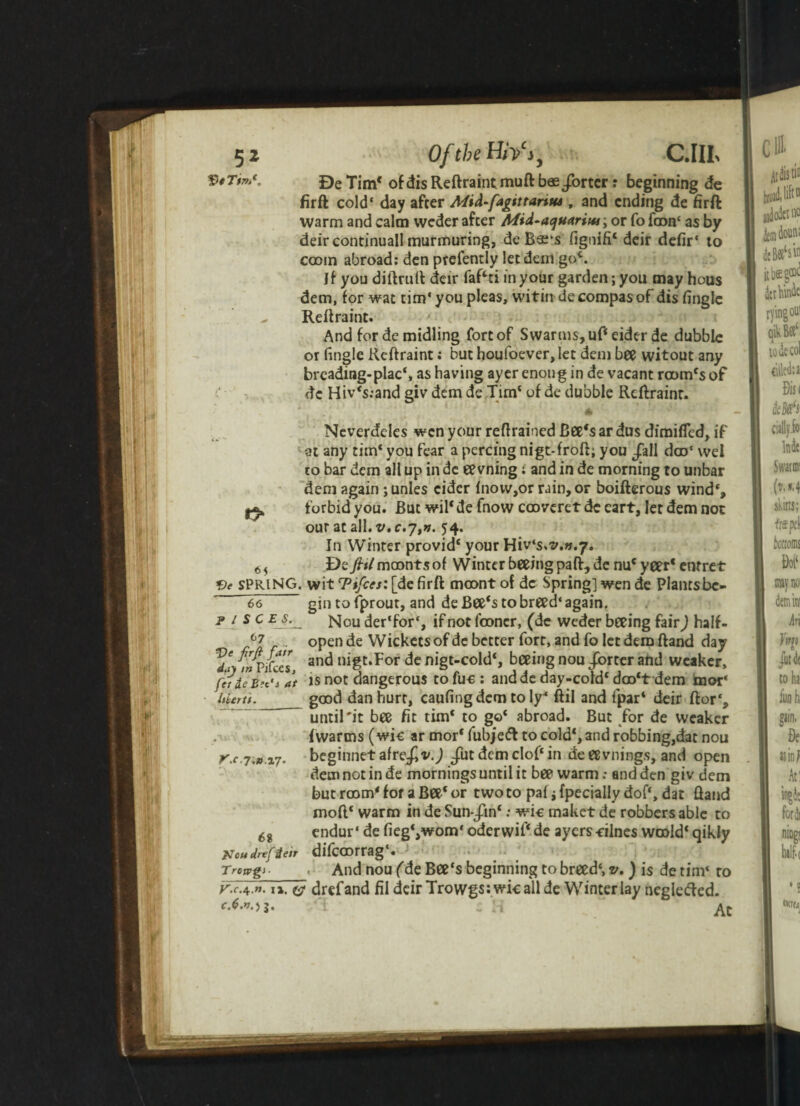 52 Of the Hiv‘s, C.III.
Ðe Tim‘.
Ðe Tim‘ of ðis Reſtraint muſt bee ſorter: beginning ðe
firſt cold‘ day after Mid-ſagittarius, and ending ðe firſt
warm and calm weðer after Mid-aquarius; or ſo ſoon‘ as by
ðeir continuall murmuring, ðe Bee‘s ſignifi‘ ðeir deſir‘ to
coom abroad: ðen preſently let ðem go‘.
If you diſtruſt ðeir ſaf‘ti in your garden; you may hous
ðem, for wat tim‘ you pleas, witin ðe compas of ðis ſingle
Reſtraint.
And for ðe midling ſort of Swarms, uſ‘ eiðer ðe dubble
or ſingle Reſtraint: but houſoever, let ðem bee witout any
breading-plac‘, as having ayer enoug in ðe vacant room‘s of
ðe Hiv‘s: and giv ðem ðe Tim‘ of ðe dubble Reſtraint.
Neverðeles wen your reſtrained Bee‘s ar ðus dimiſſed, if
at any tim‘ you fear a percing nigt-froſt; you ſall doo‘ wel
to bar ðem all up in ðe eevning: and in ðe morning to unbar
ðem again; unles eiðer ſnow, or rain, or boiſterous wind‘,
forbid you. But wil‘ ðe ſnow cooveret ðe eart, let ðem not
out at all. v. c.7,n. 54.
In Winter provid‘ your Hiv‘s. v.n.7.
65
Ðe ſtil moonts of Winter beeing paſt, ðe nu‘ yeer‘ entret
Ðe SPRING. wit Piſces: [ðe firſt moont of ðe Spring] wen ðe Plants be-
66
gin to ſprout, and ðe Bee‘s to breed‘ again.
PISCES.
Nou ðer‘for‘, if not ſooner, (ðe weðer beeing fair) half-
67
Ðe firſt fair
day in Piſces,
ſet ðe Bee‘s at
liberti.
open ðe Wickets of ðe better ſort, and ſo let ðem ſtand day
and nigt. For ðe nigt-cold‘, beeing nou ſorter and weaker,
is not dangerous to ſu‘: and ðe day-cold‘ doo‘t ðem mor‘
good ðan hurt, cauſing ðem to ly‘ ſtil and ſpar‘ ðeir ſtor‘,
until‘it bee fit tim‘ to go‘ abroad. But for ðe weaker
ſwarms (wi‘ ar mor‘ ſubject to cold‘, and robbing, ðat nou
V.c.7.n.27.
beginnet afreſ, v.) ſut ðem cloſ‘ in ðe eevnings, and open
ðem not in ðe mornings until it bee warm: and ðen giv ðem
but room‘ for a Bee‘ or two to paſ; ſpecially ðoſ‘, ðat ſtand
moſt‘ warm in ðe Sun-ſin‘: wi‘ maket ðe robbers able to
endur‘ ðe ſieg‘, wom‘ oðerwiſ‘ ðe ayers cilnes woold‘ qikly
68
Nou dreſ ðeir
Trowgs.
diſcoorrag‘.
And nou (ðe Bee‘s beginning to breed‘, v.) is ðe tim‘ to
V.c.4.n. 12. &
c.6.n.53.
dreſ and fil ðeir Trowgs: wi‘ all ðe Winter lay neglected.
At